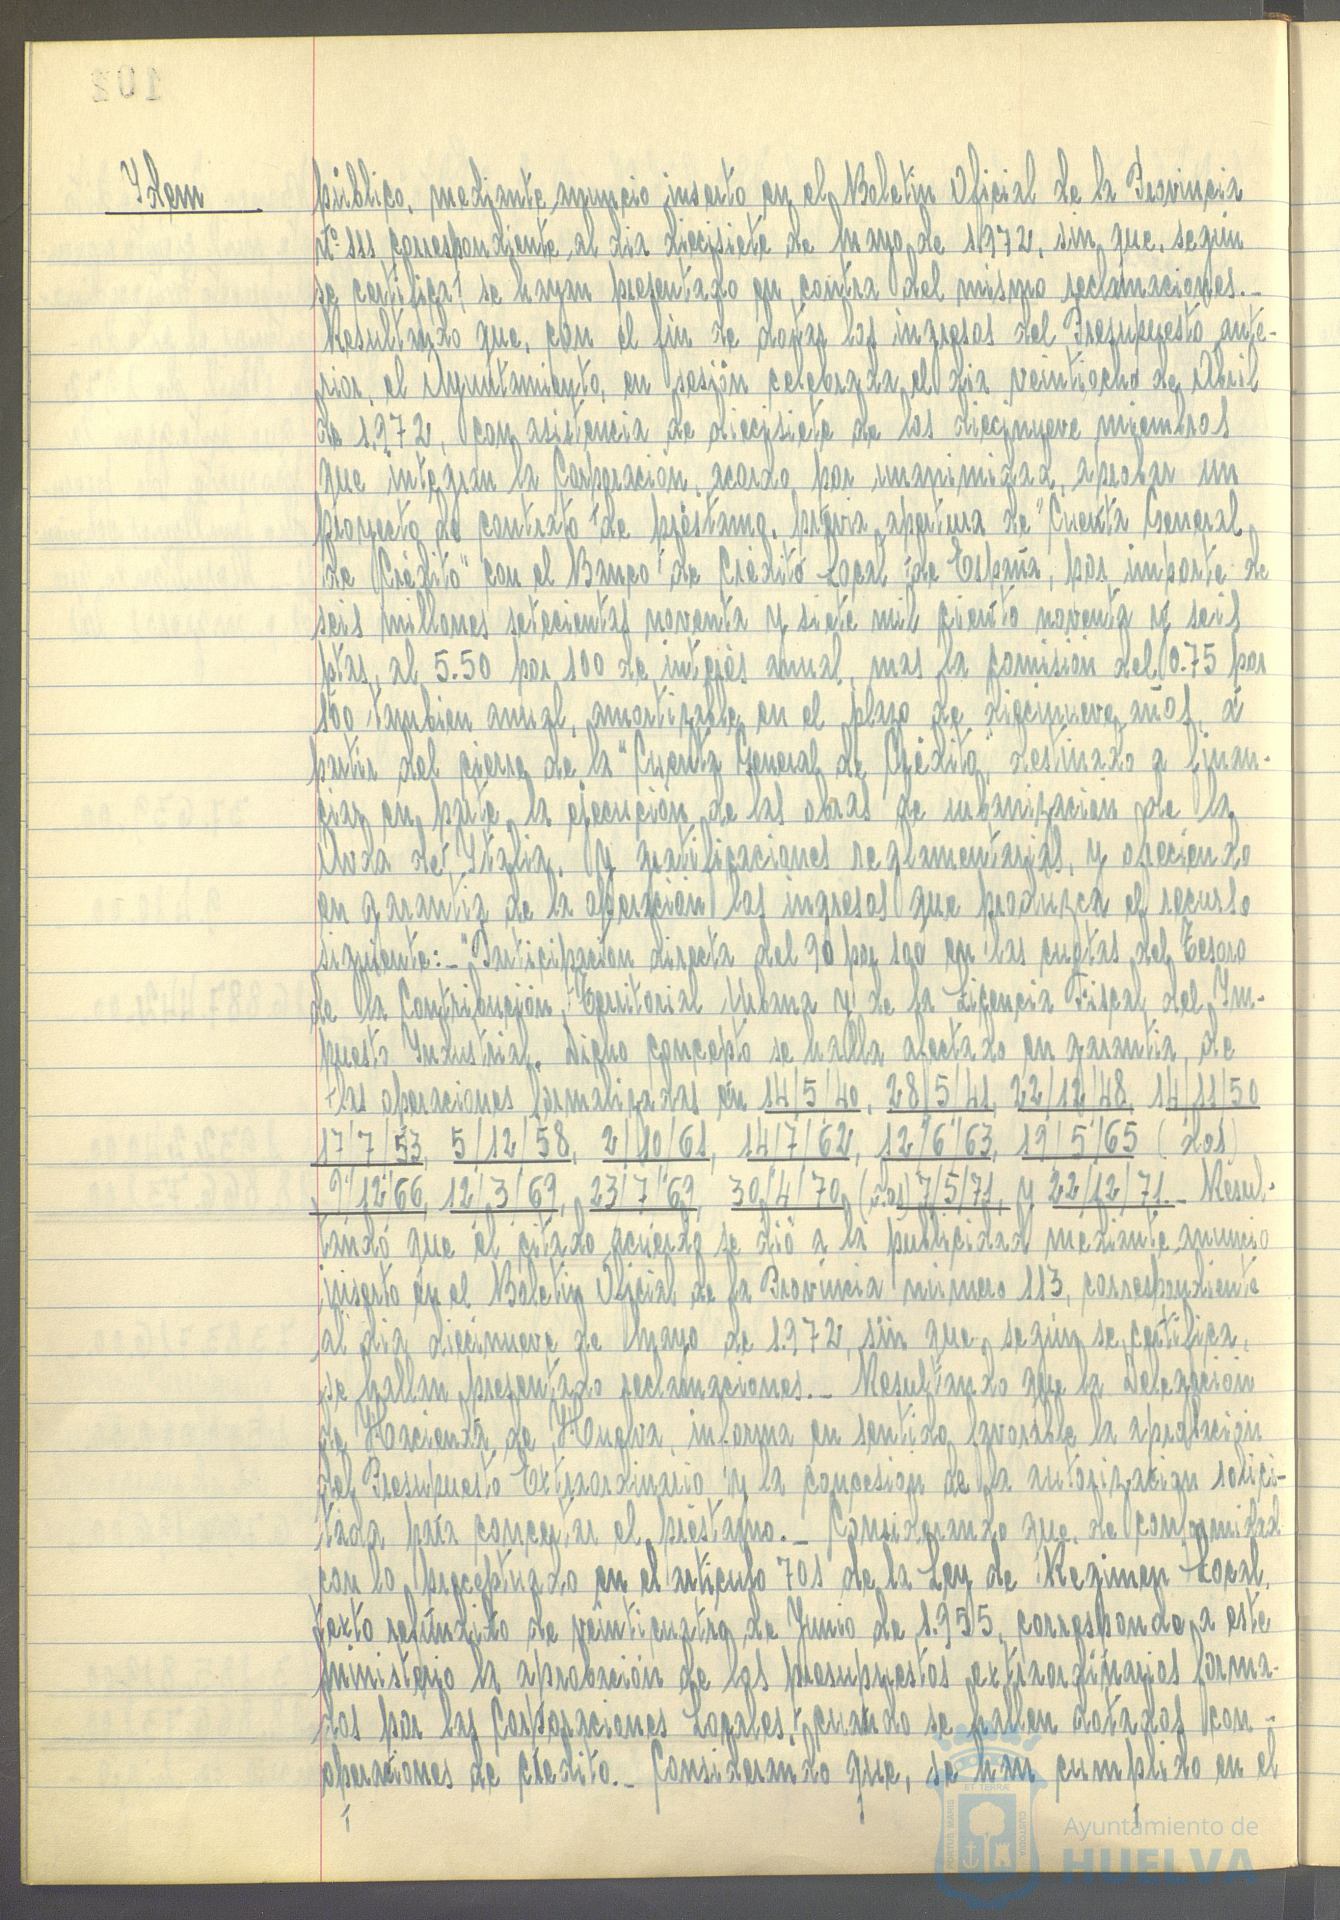 Idem
público, mediante anuncio inserto en el Boletin Oficial de la Provincia
nº 111, correspondiente al dia diecisiete de mayo de 1.972, sin que, según
se certifica, se hayan presentado en contra del mismo reclamaciones.-
Resultando que, con el fin de dotar los ingresos del Presupuesto ante-
rior, el Ayuntamiento, en sesión celebrada el dia veintiocho de Abril
de 1.972, con asistencia de diecisiete de los diecinueve miembros
que integran la Corporación, acordo por unanimidad, aprobar un
proyecto de contrato de préstamo, previa apertura de "Cuenta General
de Crédito" con el Banco de Crédito Local de España, por importe de
seis millones setecientas noventa y siete mil ciento noventa y seis
ptas, al 5.50 por 100 de interés anual, mas la comisión del 0.75 por
100 tambien anual, amortizable en el plazo de diecinueve años, a
partir del cierre de la "Cuenta General de Crédito," destinado a finan-
ciar en parte la ejecución de las obras de urbanización de la
Avda de Italia, y gratificaciones reglamentarias, y ofreciendo
en garantia de la operación los ingresos que produzca el recurso
siguiente:- "Participación directa del 90 por 100 en las cuotas del Tesoro
de la Contribución Territorial Urbana y de la Licencia Fiscal del Im-
puesto Industrial. Digno concepto se halla afectado en garantia, de
las operaciones formalizadas en 14/5/40, 28/5/41, 22/12/48, 14/11/50
17/7/53, 5/12/58, 2/10/61, 14/7/62, 12/6/63, 19/5/65 (dos)
9/12/66, 12/3/69, 23/7/69, 30/4/70 (dos) 7/5/71, y 22/12/71.- Resul-
tando que el citado acuerdo se dió a la publicidad mediante anuncio
inserto en el Boletin Oficial de la Provincia número 113, correspondiente
al dia diecinueve de mayo de 1.972, sin que, según se certifica,
se hallan presentado reclamaciones.- Resultando que la Delegación
de Hacienda de Huelva, informa en sentido favorable la aprobación
del Presupuesto Extraordinario y la concesión de la autorización solici-
tada para concertar el préstamo.- Considerando que, de conformidad
con lo preceptuado en el articulo 701 de la Ley de Regimen Local,
texto refundido de veinticuatro de Junio de 1.955, corresponde a este
ministerio la aprobación de los presupuestos extraordinarios forma-
dos por las Corporaciones Locales, cuando se hallen dotados con -
operaciones de crédito.- Considerando que, se han cumplido en el
Ayuntamiento de
HUELVA